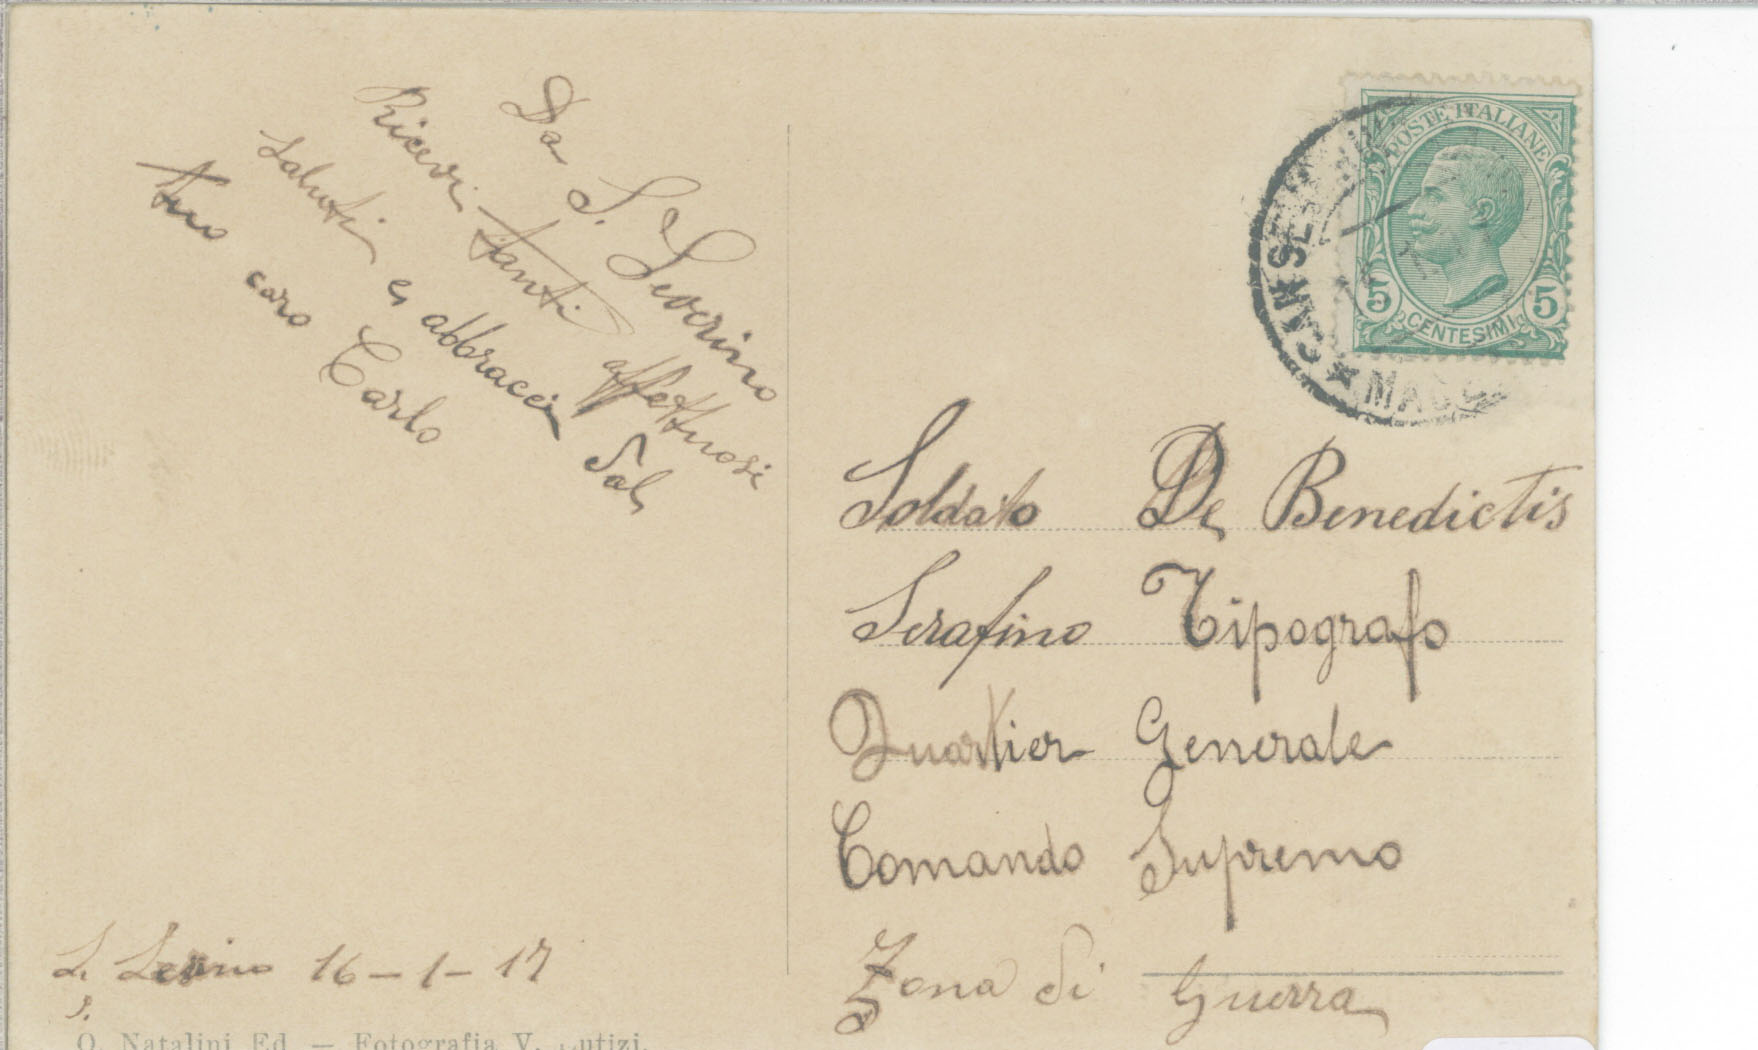 Da S. Severino
Ricevi tanti affettuosi
saluti e abbracci dal
tuo caro Carlo
16-1-17
O. Natalini Ed. — Fotografia V.
POSTE ITALIANE
5 5
CENTESIMI
Soldato De Benedictis
Serafino Tipografo
Quartier Generale
Comando Supremo
Zona di Guerra